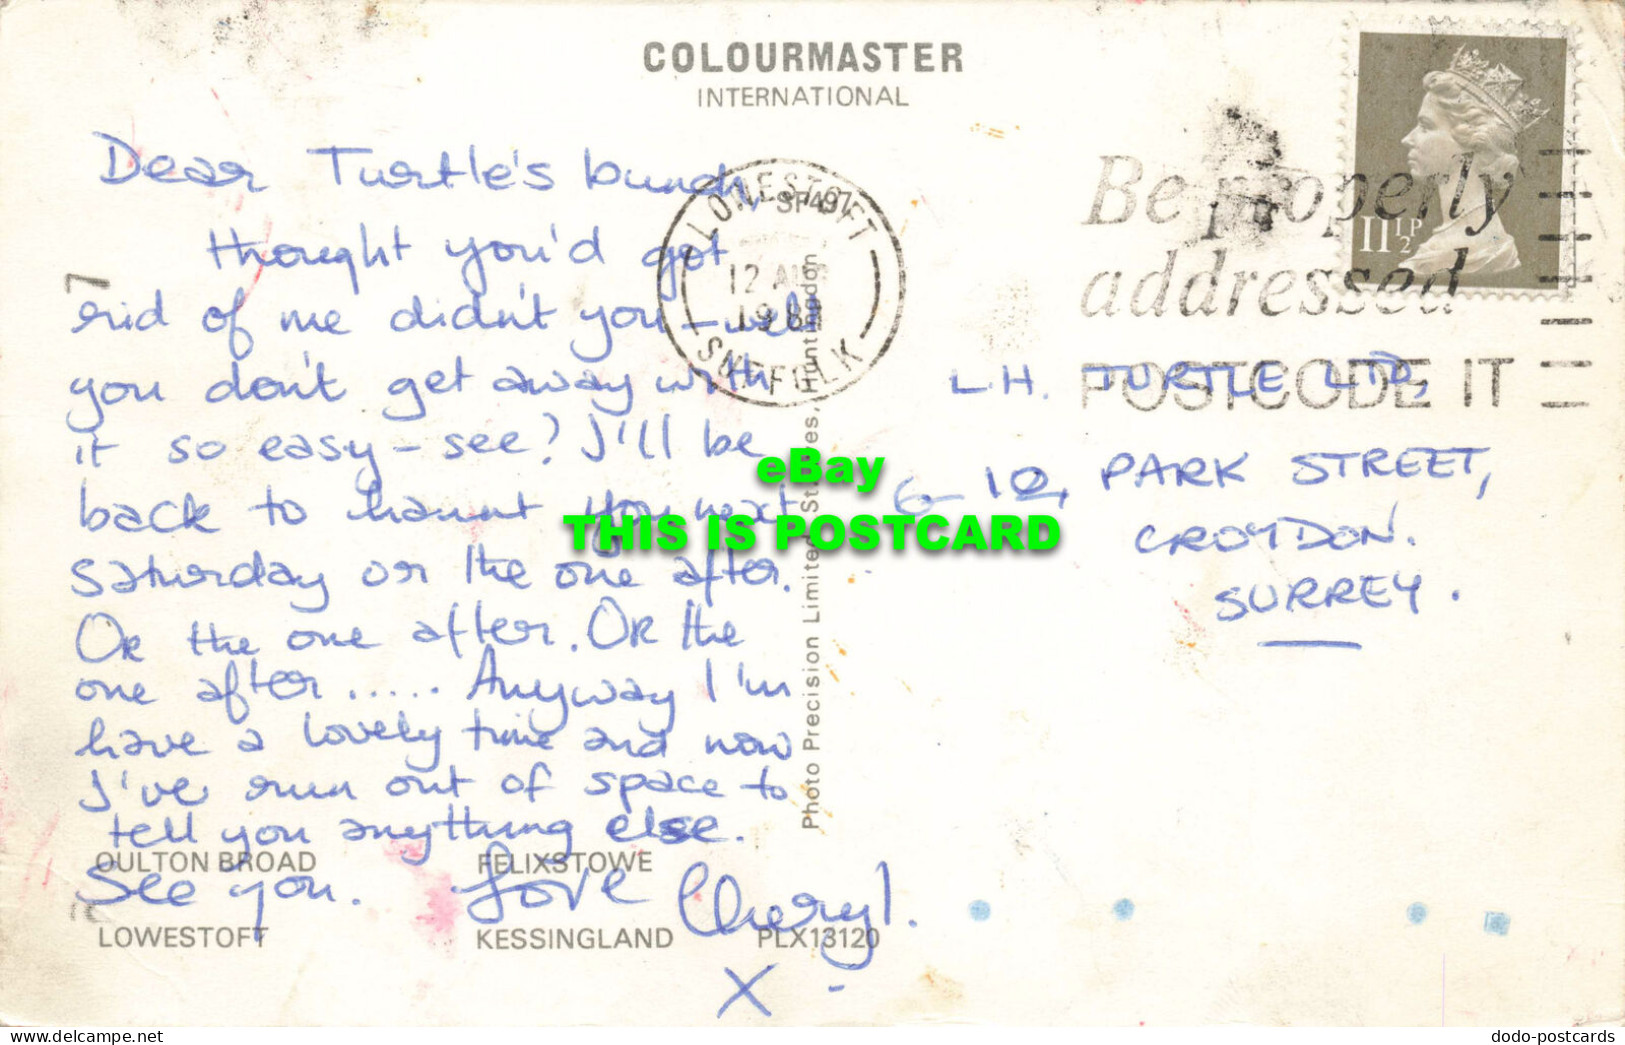 COLOURMASTER
INTERNATIONAL
Dear Turtle's bunch,
thought you'd got
rid of me didn't you – well
you don't get away with
it so easy – see? I'll be
back to haunt you next
saturday or the one after.
OR the one after. OR the
one after..... Anyway I'm
have a lovely time and now
I've run out of space to
tell you anything else.
See you. Love Cheryl.
X
LOWESTOFT
SUFFOLK
12 AUG
1981
Be properly
addressed
POSTCODE IT
11½P
L.H. TURTLE LTD,
6–12, PARK STREET,
CROYDON.
SURREY.
Photo Precision Limited, St. Ives, Huntingdon
SP497
OULTON BROAD
FELIXSTOWE
LOWESTOFT
KESSINGLAND
PLX13120
eBay
THIS IS POSTCARD
dodo-postcards